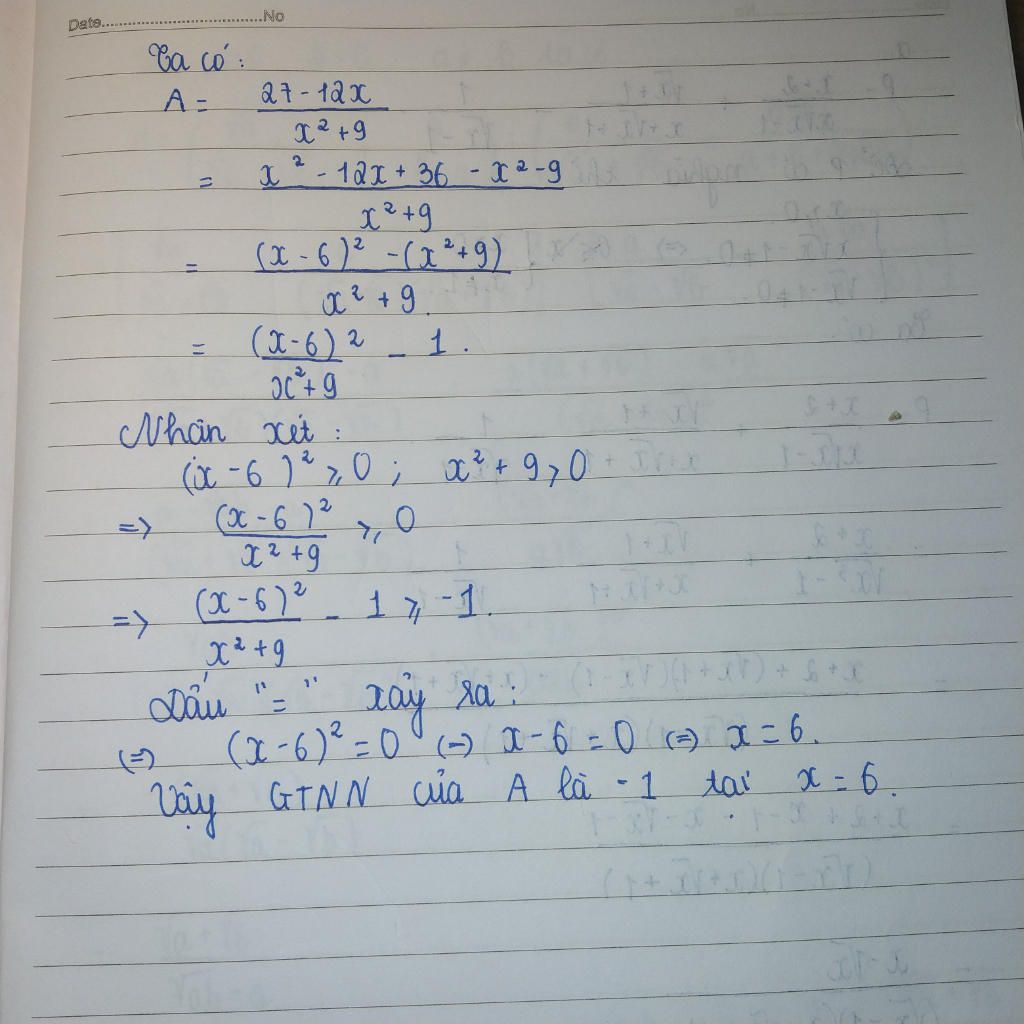 Date......................................No
Ta có:
A = \frac{27 - 12x}{x² + 9}
= \frac{x² - 12x + 36 - x² - 9}{x² + 9}
= \frac{(x - 6)² - (x² + 9)}{x² + 9}
= \frac{(x - 6)²}{x² + 9} - 1.
Nhận xét:
(x - 6)² ≥ 0; x² + 9 > 0
=> \frac{(x - 6)²}{x² + 9} ≥ 0
=> \frac{(x - 6)²}{x² + 9} - 1 ≥ -1.
Dấu "=" xảy ra:
(=) (x - 6)² = 0 (=) x - 6 = 0 (=) x = 6.
Vậy GTNN của A là -1 tại x = 6.